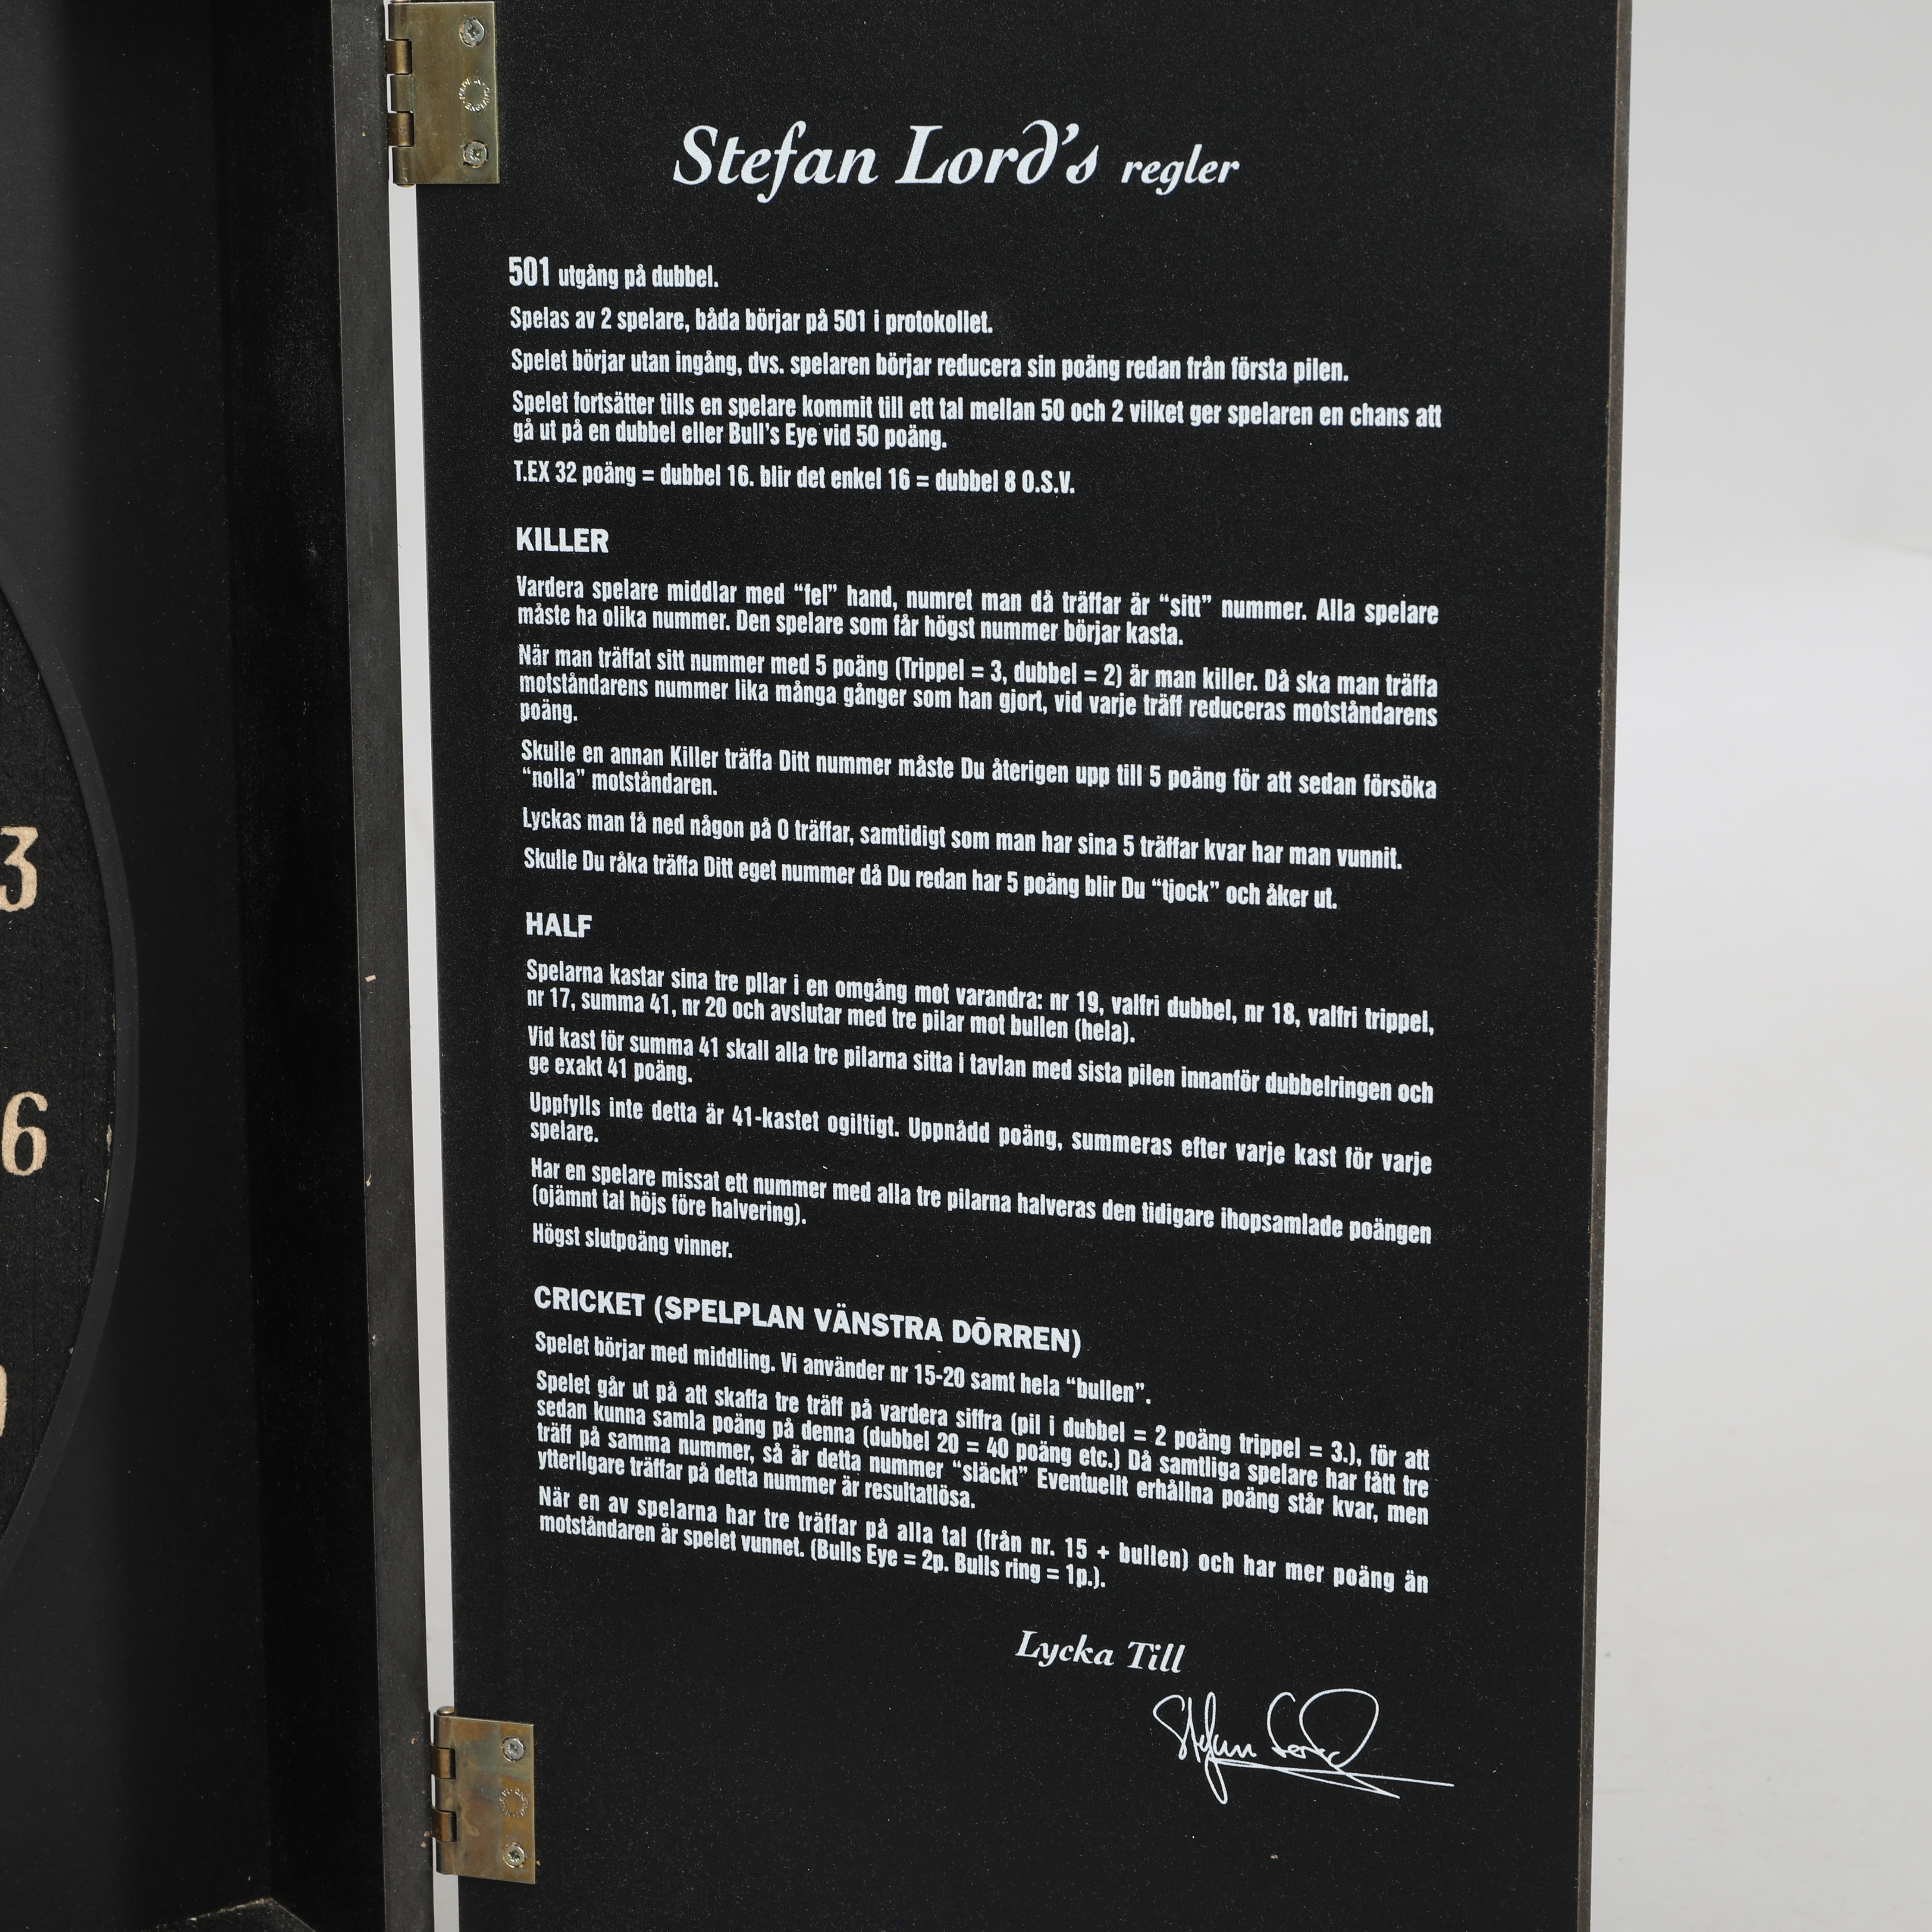 Stefan Lord's regler
501 utgång på dubbel.
Spelas av 2 spelare, båda börjar på 501 i protokollet.
Spelet börjar utan ingång, dvs. spelaren börjar reducera sin poäng redan från första pilen.
Spelet fortsätter tills en spelare kommit till ett tal mellan 50 och 2 vilket ger spelaren en chans att
gå ut på en dubbel eller Bull's Eye vid 50 poäng.
T.EX 32 poäng = dubbel 16. blir det enkel 16 = dubbel 8 O.S.V.
KILLER
Vardera spelare middlar med “fel” hand, numret man då träffar är “sitt” nummer. Alla spelare
måste ha olika nummer. Den spelare som får högst nummer börjar kasta.
När man träffat sitt nummer med 5 poäng (Trippel = 3, dubbel = 2) är man killer. Då ska man träffa
motståndarens nummer lika många gånger som han gjort, vid varje träff reduceras motståndarens
poäng.
Skulle en annan Killer träffa Ditt nummer måste Du återigen upp till 5 poäng för att sedan försöka
“nolla” motståndaren.
Lyckas man få ned någon på 0 träffar, samtidigt som man har sina 5 träffar kvar har man vunnit.
Skulle Du råka träffa Ditt eget nummer då Du redan har 5 poäng blir Du “tjock” och åker ut.
HALF
Spelarna kastar sina tre pilar i en omgång mot varandra: nr 19, valfri dubbel, nr 18, valfri trippel,
nr 17, summa 41, nr 20 och avslutar med tre pilar mot bullen (hela).
Vid kast för summa 41 skall alla tre pilarna sitta i tavlan med sista pilen innanför dubbelringen och
ge exakt 41 poäng.
Uppfylls inte detta är 41-kastet ogiltigt. Uppnådd poäng, summeras efter varje kast för varje
spelare.
Har en spelare missat ett nummer med alla tre pilarna halveras den tidigare ihopsamlade poängen
(ojämnt tal höjs före halvering).
Högst slutpoäng vinner.
CRICKET (SPELPLAN VÄNSTRA DÖRREN)
Spelet börjar med middling. Vi använder nr 15-20 samt hela “bullen”.
Spelet går ut på att skaffa tre träff på vardera siffra (pil i dubbel = 2 poäng trippel = 3.), för att
sedan kunna samla poäng på denna (dubbel 20 = 40 poäng etc.) Då samtliga spelare har fått tre
träff på samma nummer, så är detta nummer “släckt” Eventuellt erhållna poäng står kvar, men
ytterligare träffar på detta nummer är resultatlösa.
När en av spelarna har tre träffar på alla tal (från nr. 15 + bullen) och har mer poäng än
motståndaren är spelet vunnet. (Bulls Eye = 2p. Bulls ring = 1p.).
Lycka Till
Stefan Lord
3
6